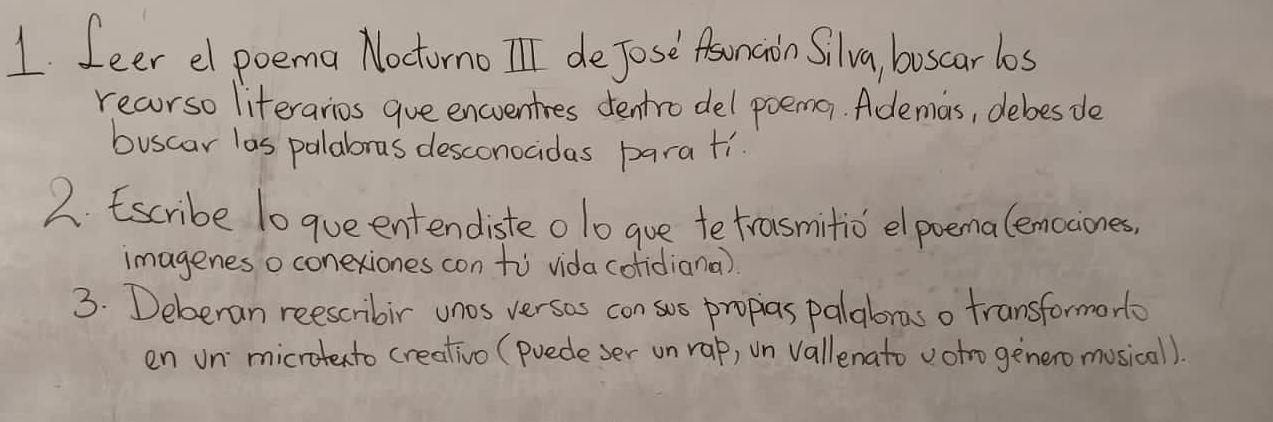 1. Leer el poema Nocturno III de José Asunción Silva, buscar los
recurso literarios que encuentres dentro del poema. Además, debes de
buscar las palabras desconocidas para tí.
2. Escribe lo que entendiste o lo que te trasmitió el poema (emociones,
imagenes o conexiones con tú vida cotidiana).
3. Deberan reescribir unos versos con sus propias palabras o transformarlo
en un microtexto creativo (puede ser un rap, un vallenato u otro género musical).